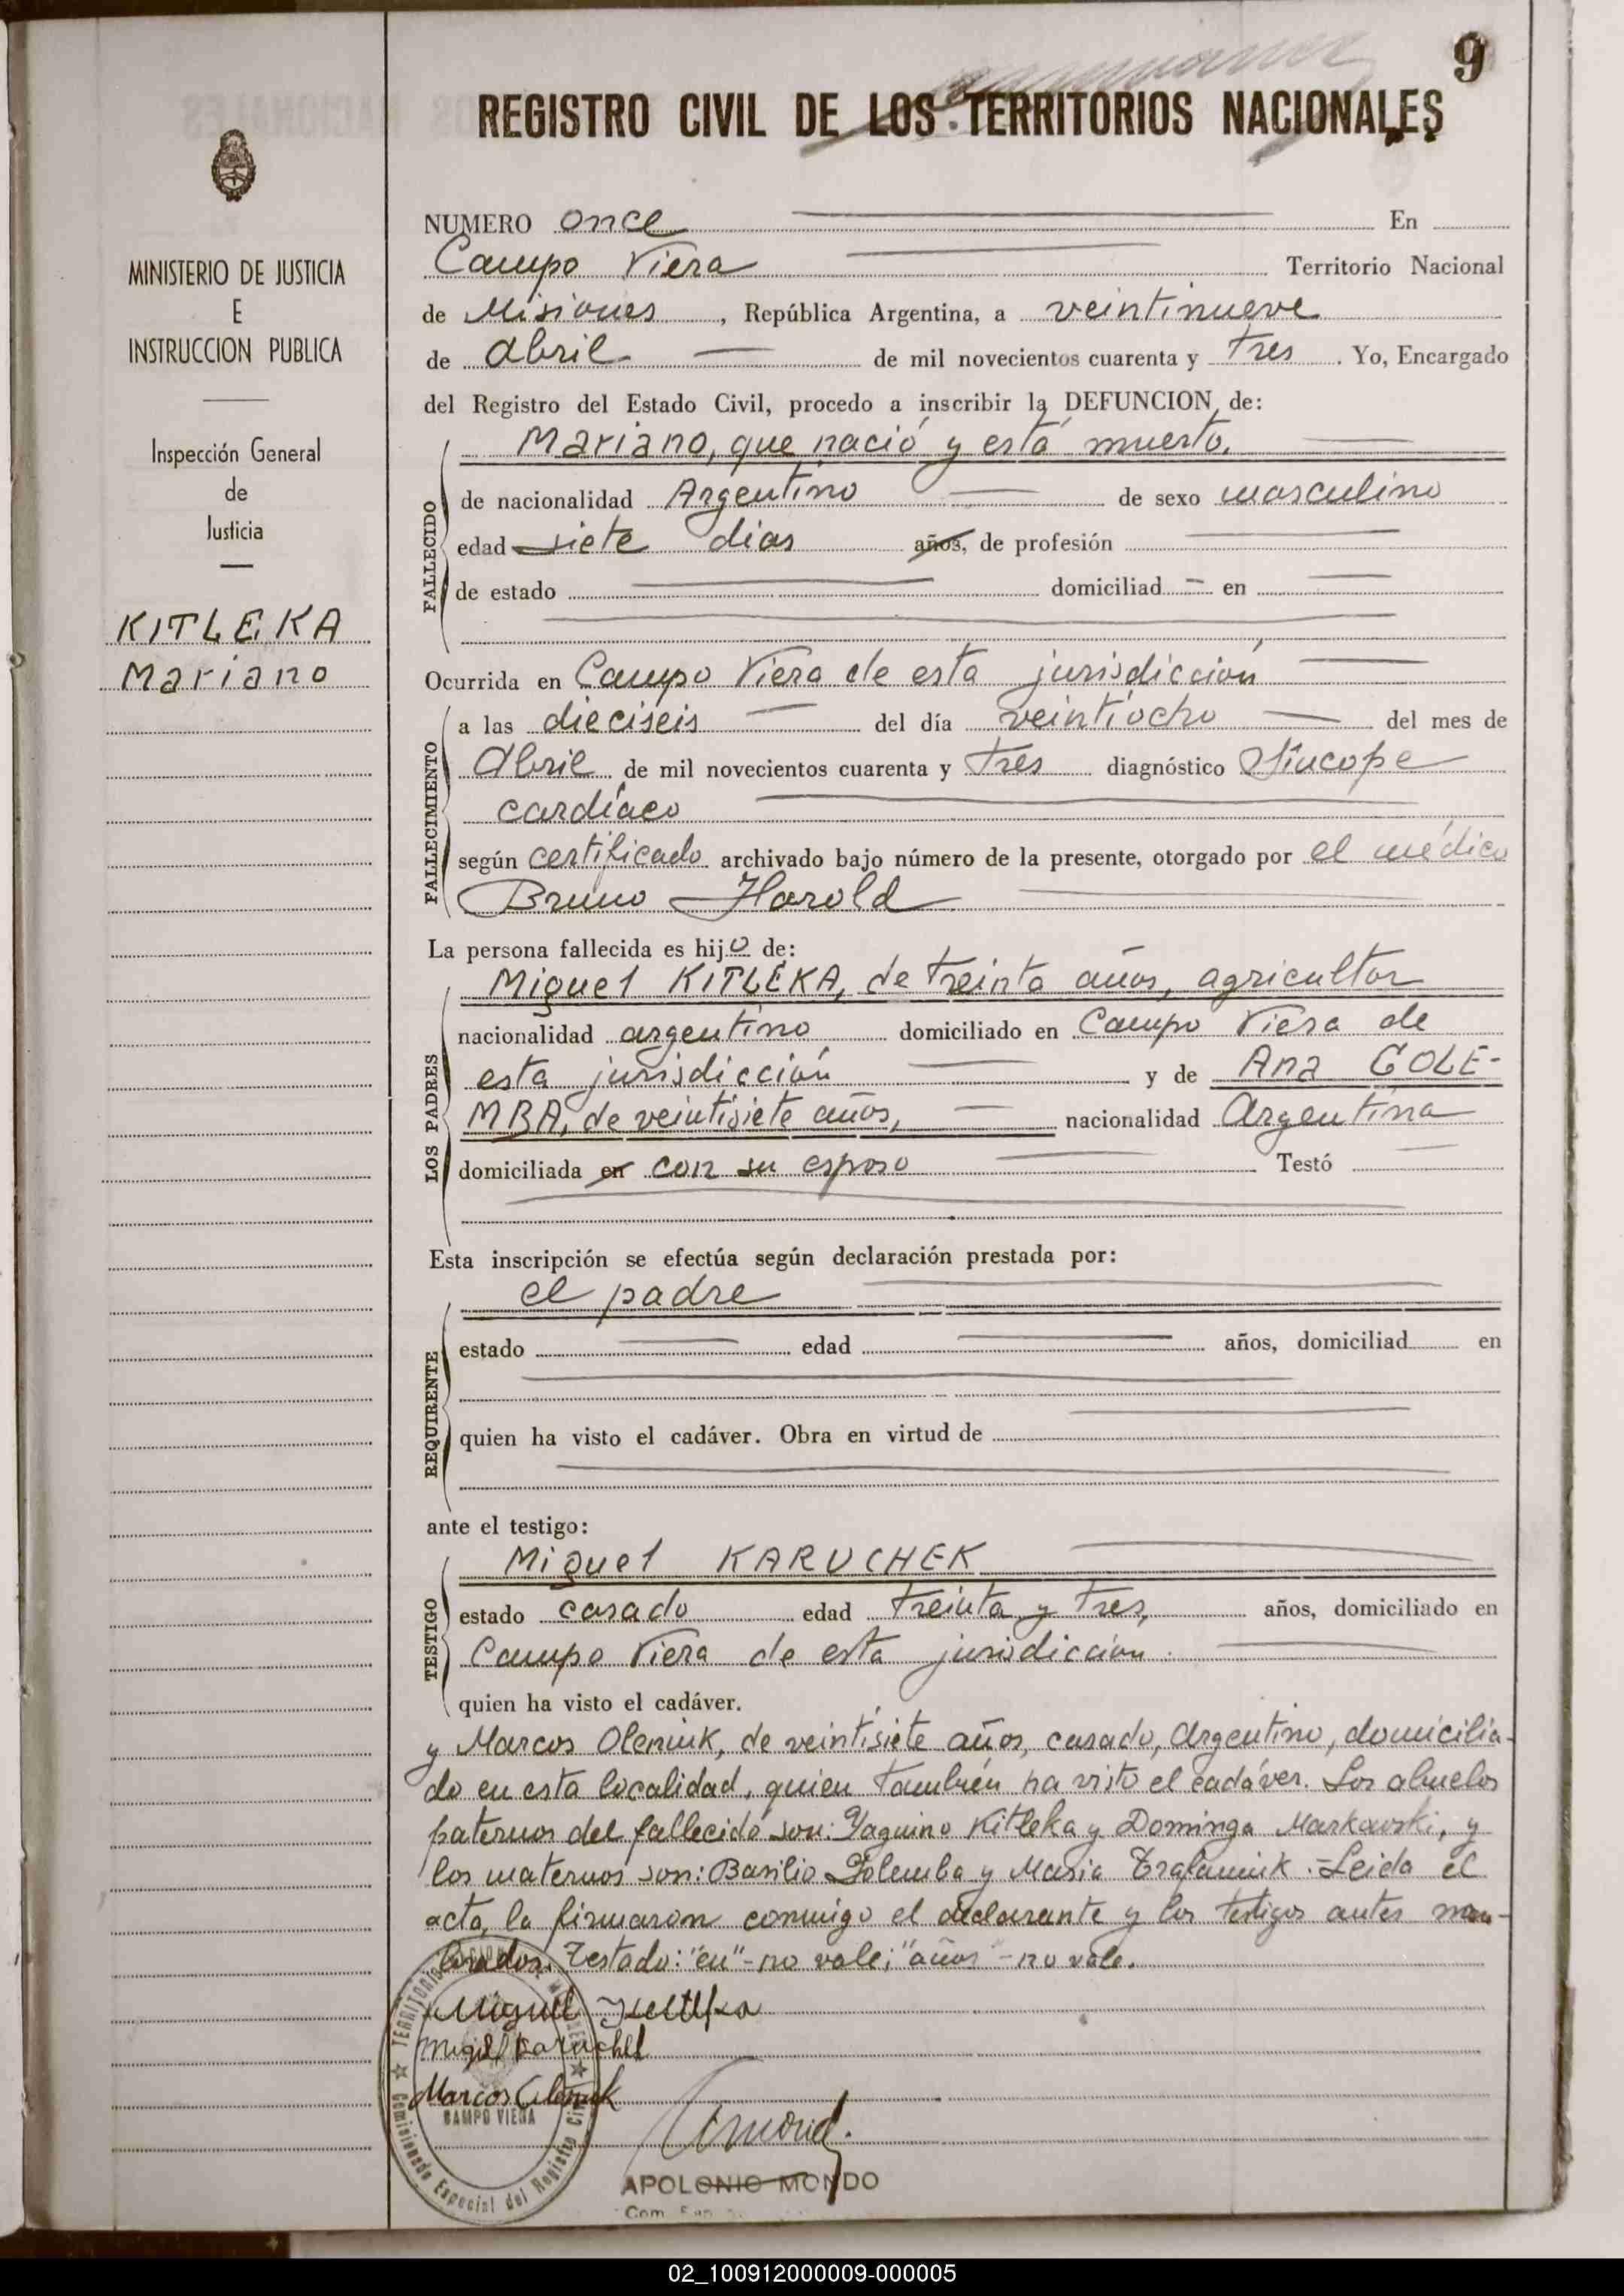 9
REGISTRO CIVIL DE LOS TERRITORIOS NACIONALES
MINISTERIO DE JUSTICIA
E
INSTRUCCION PUBLICA
Inspección General
de
Justicia
KITLEKA
Mariano
NUMERO once En
Campo Viera Territorio Nacional
de Misiones, República Argentina, a veintinueve
de Abril de mil novecientos cuarenta y tres. Yo, Encargado
del Registro del Estado Civil, procedo a inscribir la DEFUNCION de:
Mariano, que nació y está muerto.
FALLECIDO
de nacionalidad Argentino de sexo masculino
edad siete dias años, de profesión
de estado domiciliad en
Ocurrida en Campo Viera de esta jurisdicción
FALLECIMIENTO
a las dieciseis del día veintiocho del mes de
Abril de mil novecientos cuarenta y tres diagnóstico Síncope
cardíaco
según certificado archivado bajo número de la presente, otorgado por el médico
Bruno Harold
La persona fallecida es hijo de:
LOS PADRES
Miguel KITLEKA, de treinta años, agricultor
nacionalidad argentino domiciliado en Campo Viera de
esta jurisdicción y de Ana GOLE-
MBA, de veintisiete años, nacionalidad Argentina
domiciliada en con su esposo Testó
Esta inscripción se efectúa según declaración prestada por:
REQUIRENTE
el padre
estado edad años, domiciliad en
quien ha visto el cadáver. Obra en virtud de
ante el testigo:
TESTIGO
Miguel KARUCHEK
estado casado edad treinta y tres, años, domiciliado en
Campo Viera de esta jurisdicción.
quien ha visto el cadáver.
y Marcos Oleniuk, de veintisiete años, casado, Argentino, domicilia-
do en esta localidad, quien también ha visto el cadáver. Los abuelos
paternos del fallecido son: Yaquino Kitleka y Dominga Markowski, y
los maternos son: Basilio Golemba y Maria. Leida el
acta, la firmaron conmigo el declarante y los testigos antes
Testado: "en" - no vale; "años" - no vale.
Miguel
Miguel Karuchek
Marcos Oleniuk
TERRITORIO
CAMPO VIERA
Comisionado Especial del Registro Civil
APOLONIO MONDO
Com.
02_100912000009-000005